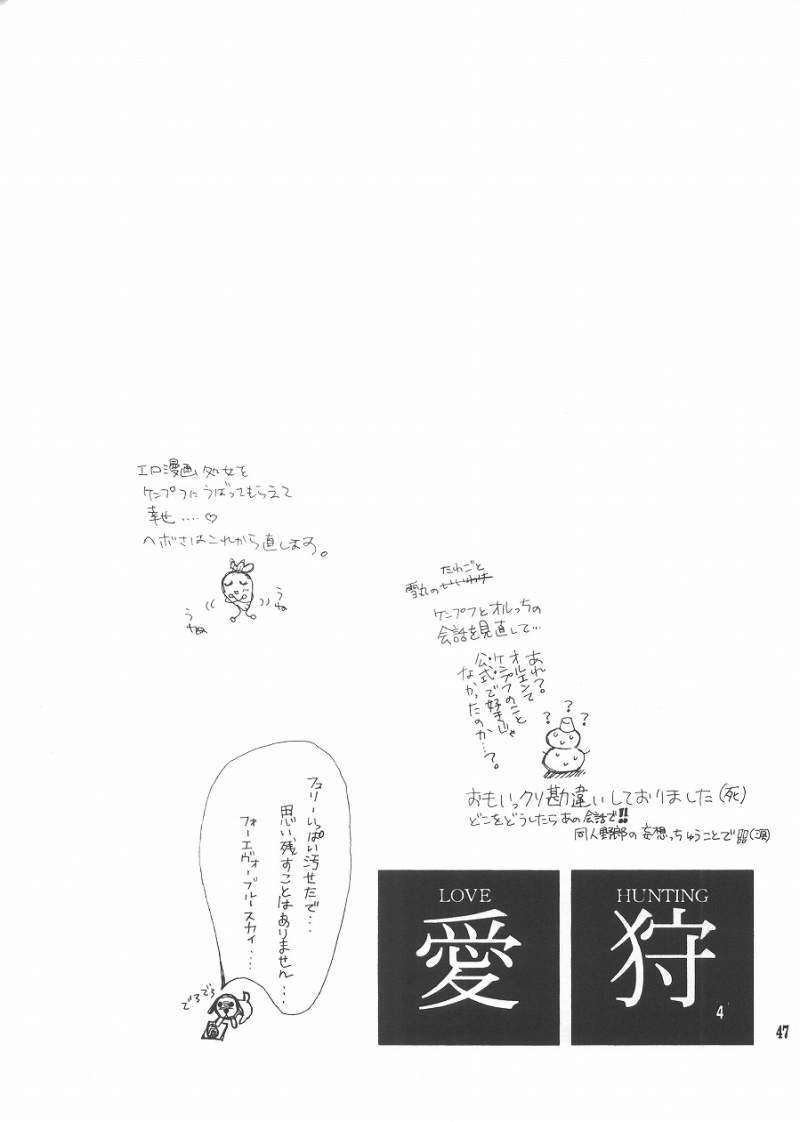 エロ漫画処女を
ケンプフにうばってもらえて
幸せ....♡
ヘボさはこれから直します。
うねうね
うねうね
たわごと
雪丸のいいわけ
ケンプフとオルっちの
会話を見直して...
あれ?
オルエンて
ケンプフのこと
公式で好きじゃ
なかったのか...?。
? ? ?
おもいっクリ勘違いしておりました(死)
どこをどうしたらあの会話で!!
同人野郎の妄想っちゅうことで(涙)
フュリーいっぱい汚せたで...
思い残すことはありません...
フォーエヴォーブルースカイ....
でろでろ
LOVE
愛
HUNTING
狩
4
47